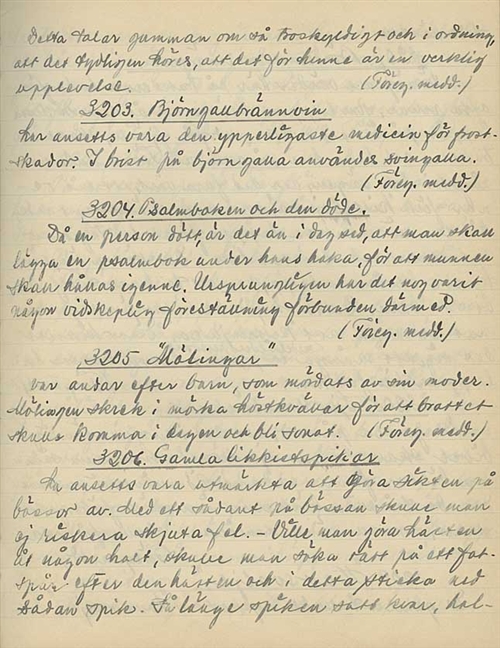 Detta talar gumman om så troskyldigt och i ordning,
att det tydligen höres, att det för henne är en verklig
upplevelse. (Föreg. medd.)
3203. Björngallbrännvin
har ansetts vara den ypperligaste medicin för frost-
skador. I brist på björngalla användes svingalla.
(Föreg. medd.)
3204. Psalmboken och den döde.
Då en person dött, är det än i dag sed, att man skall
lägga en psalmbok under hans haka, för att munnen
skall hållas igenne. Ursprungligen har det nog varit
någon vidskeplig föreställning förbunden därmed.
(Föreg. medd.)
3205 "Mölingar"
var andar efter barn, som mördats av sin moder.
Mölingen skrek i mörka höstkvällar för att brottet
skulle komma i dagen och bli sonat. (Föreg. medd.)
3206. Gamla likkistspikar
ha ansetts vara utmärkta att göra sikten på
bössor av. Med ett sådant på bössan skulle man
ej riskera skjuta fel. – Ville man göra hästen
åt någon halt, skulle man söka rätt på ett fot-
spår efter den hästen och i detta sticka ned
sådan spik. Så länge spiken satt kvar, hal-